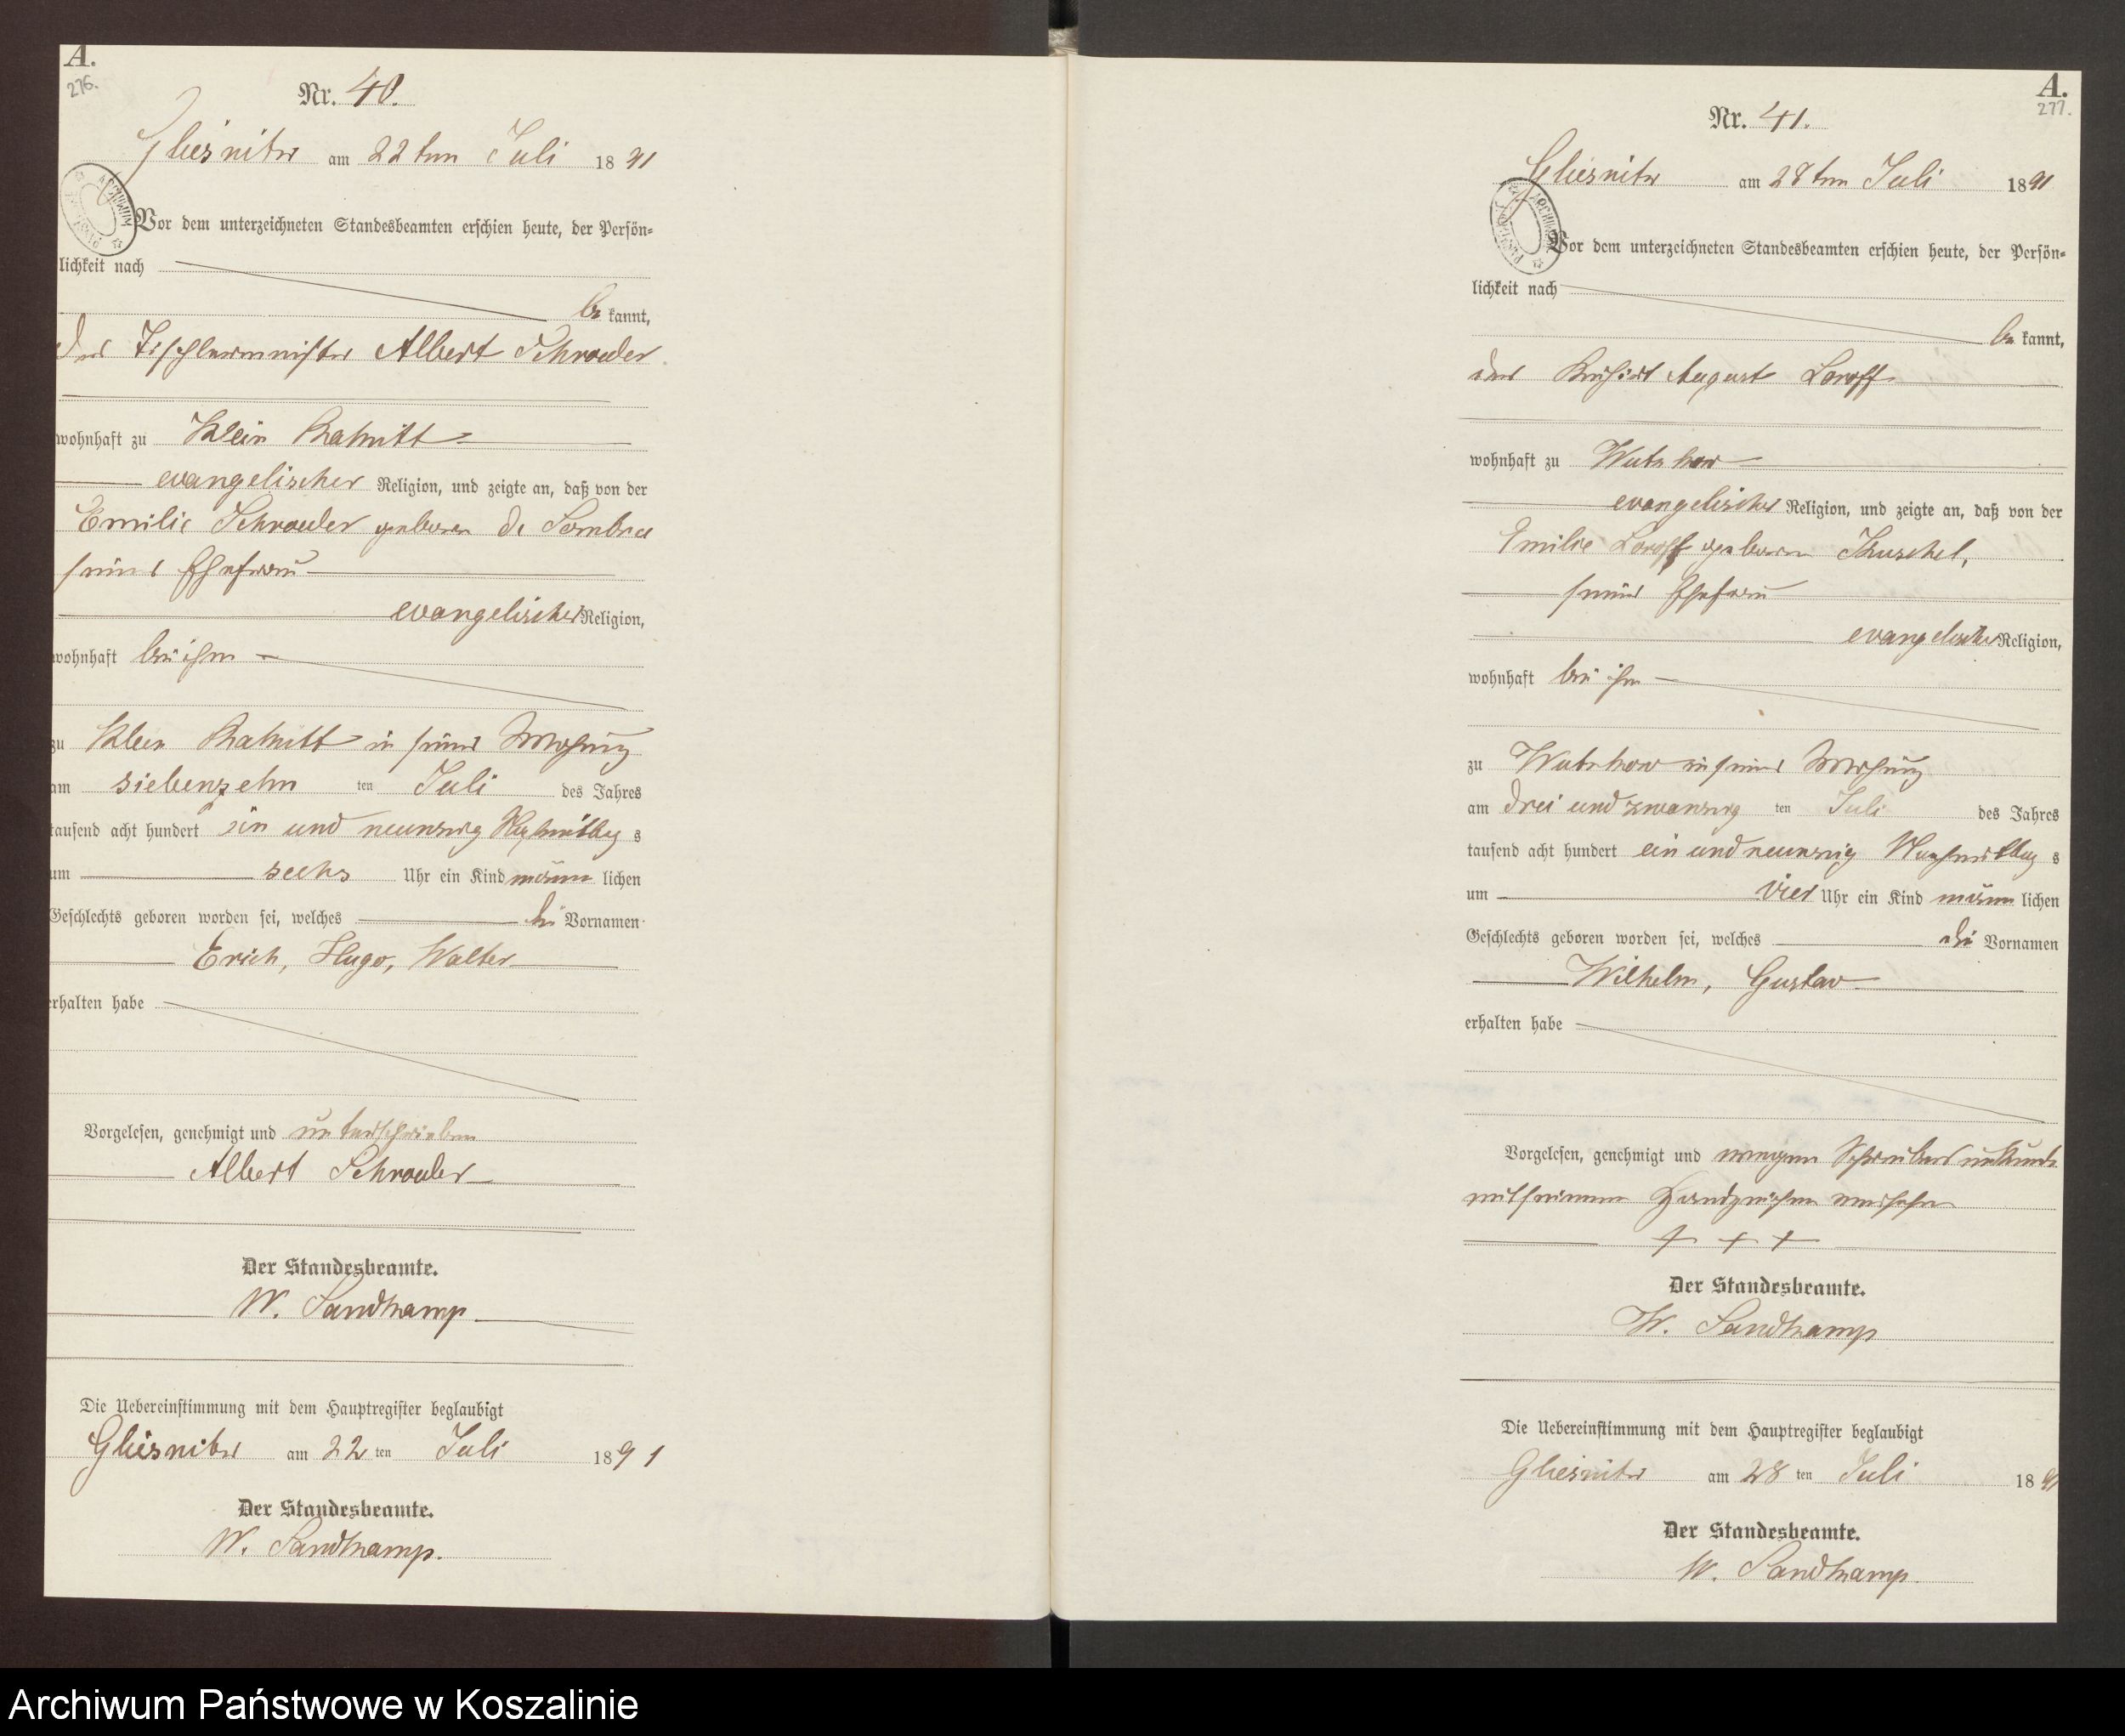 A.
276.
Nr. 40.
Gliesnitz am 22ten Juli 1891
Vor dem unterzeichneten Standesbeamten erschien heute, der Persön-
lichkeit nach
be kannt,
der Tischlermeister Albert Schroeder
wohnhaft zu Klein
evangelischer Religion, und zeigte an, daß von der
Emilie Schroeder geboren de
seiner Ehefrau
evangelischer Religion,
wohnhaft bei ihm
zu Klein in seiner Wohnung
am siebenzehn ten Juli des Jahres
tausend acht hundert ein und neunzig Nachmittag s
um sechs Uhr ein Kind männ lichen
Geschlechts geboren worden sei, welches die Vornamen
Erich, Hugo, Walter
erhalten habe
Vorgelesen, genehmigt und unterschrieben
Albert Schroeder
Der Standesbeamte.
W. Sandkamp
Die Uebereinstimmung mit dem Hauptregister beglaubigt
Gliesnitz am 22 ten Juli 1891
Der Standesbeamte.
W. Sandkamp.
A.
277.
Nr. 41.
Gliesnitz am 28ten Juli 1891
ARCHIWUM
Vor dem unterzeichneten Standesbeamten erschien heute, der Persön-
lichkeit nach
be kannt,
der August Loroff
wohnhaft zu Wutzkow
evangelischer Religion, und zeigte an, daß von der
Emilie Loroff geboren Kuschel,
seiner Ehefrau
evangelischer Religion,
wohnhaft bei ihm
zu Wutzkow in seiner Wohnung
am drei und zwanzig ten Juli des Jahres
tausend acht hundert ein und neunzig Nachmittag s
um vier Uhr ein Kind männ lichen
Geschlechts geboren worden sei, welches die Vornamen
Wilhelm, Gustav
erhalten habe
Vorgelesen, genehmigt und wegen Schreibensunkunde
mit seinem Handzeichen versehen
+ + +
Der Standesbeamte.
W. Sandkamp
Die Uebereinstimmung mit dem Hauptregister beglaubigt
Gliesnitz am 28 ten Juli 1891
Der Standesbeamte.
W. Sandkamp.
Archiwum Państwowe w Koszalinie